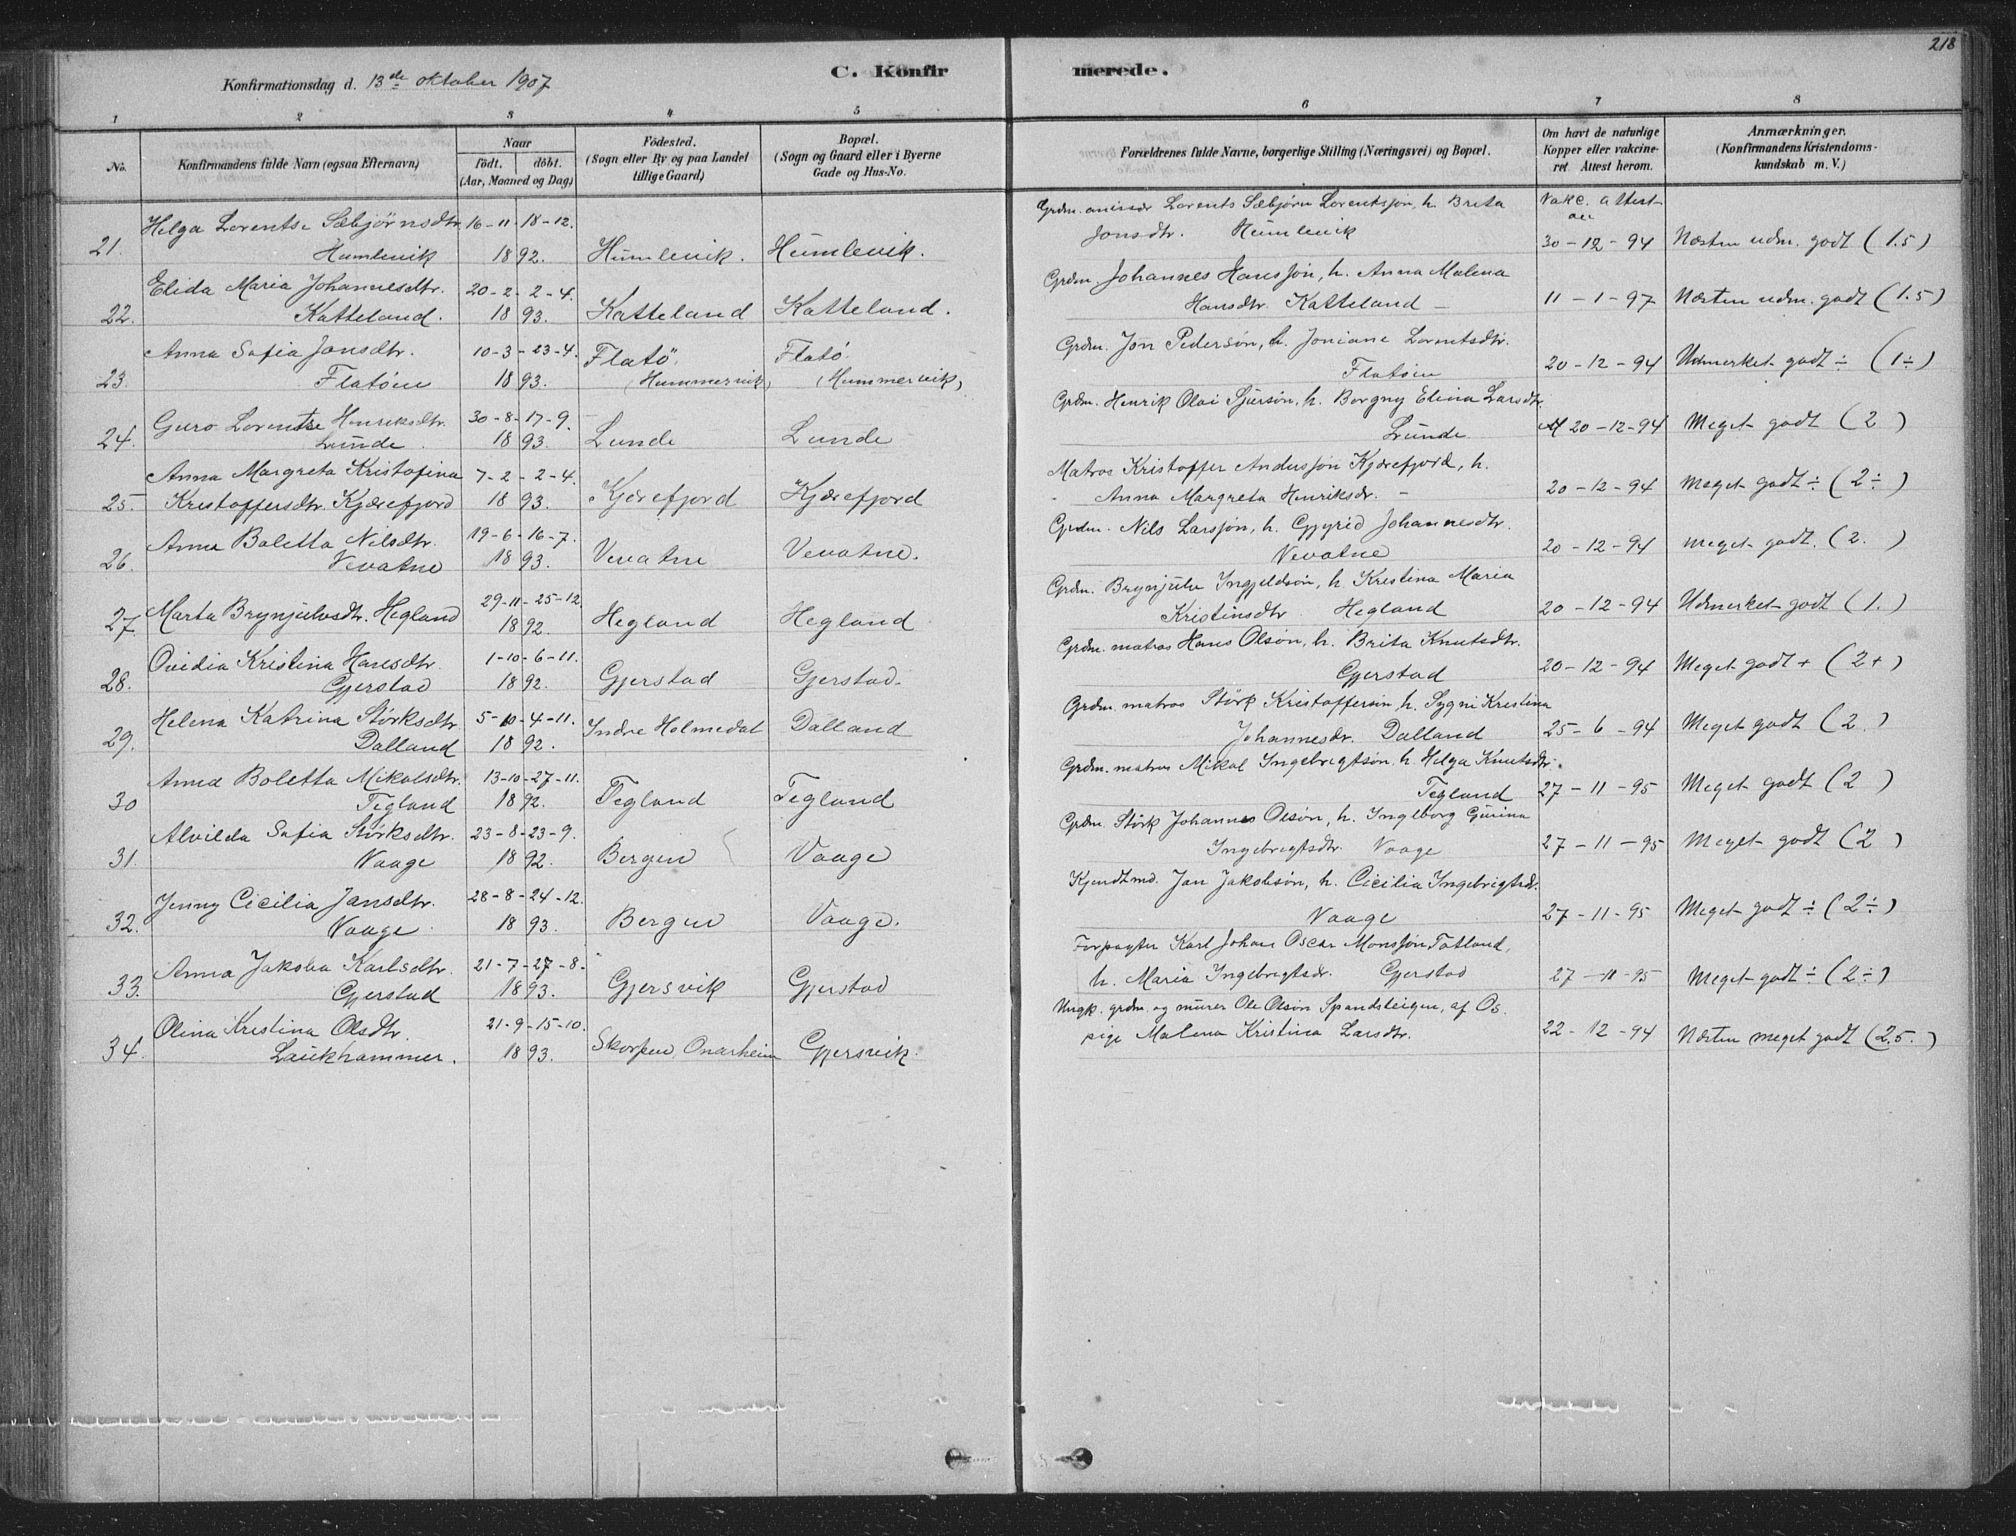 218
Konfirmationsdag d. 13de oktober 1907
C. Konfirmerede.
1 2 3 4 5 6 7 8
No.
Konfirmandens fulde Navn (ogsaa Efternavn)
Naar
født. døbt.
(Aar, Maaned og Dag)
Födested.
(Sogn eller By og paa Landet
tillige Gaard)
Bopæl.
(Sogn og Gaard eller i Byerne
Gade og Hus-No.
Forældrenes fulde Navne, borgerlige Stilling (Næringsvei) og Bopæl.
Om havt de naturlige
Kopper eller vakcine-
ret Attest herom.
Anmærkninger.
(Konfirmandens Kristendoms-
kundskab m. V.)
Helga Lorentse Sæbjørnsdtr. 16-11- 18-12. Grdm. Lorents Sæbjørn Lorentsson, h. Brita Vakc. attest
21. Humlevik 1892. Humlevik. Humlevik. Jonsdtr. Humlevik 30-12-94 Næsten udm. godt (1.5)
Elida Maria Johannesdtr. 20-2- 2-4. Grdm. Johannes Hansson, h. Anna Malena
22. Katteland. 1893. Katteland Katteland. Hansdtr. Katteland - 11-1-97 Næsten udm. godt (1.5)
Anna Sofia Jonsdtr. 10-3- 23-4. Flatö Flatö Grdm. Jon Pederson, h. Joniane Lorentsdtr.
23. Flatöen 1893. (Hummervik) (Hummervik) Flatöen 20-12-94 Udmerket godt ÷ (1÷)
Guro Lorentse Henriksdtr. 30-8- 17-9. Grdm. Henrik Olai Sjurson, h. Borgny Elina Larsdtr.
24. Lunde. 1893. Lunde Lunde Lunde 20-12-94 Meget godt (2)
Anna Margreta Kristofina 7-2- 2-4. Matros Kristoffer Andersson Kjærefjord, h.
25. Kristoffersdtr. Kjærefjord 1893. Kjærefjord Kjærefjord Anna Margreta Henriksdr. - 20-12-94 Meget godt ÷ (2÷)
Anna Boletta Nilsdtr. 19-6- 16-7. Grdm. Nils Larsson, h. Gyrid Johannesdtr.
26. Vevatne 1893. Vevatne Vevatne. Vevatne 20-12-94 meget godt. (2.)
29-11- 25-12 Grdm. Brynjulv Ingjeldsön, h. Kristina Maria
27. Marta Brynjulvsdt. Hegland 1892. Hegland Hegland Kristinsdtr. Hegland 20-12-94 Udmerket godt (1.)
Ovidia Kristina Hansdtr. 1-10- 6-11. Grdm. matros Hans Olson, h. Brita Knutsdtr.
28. Gjerstad 1892. Gjerstad Gjerstad. Gjerstad 20-12-94 Meget godt + (2+)
Helena Katrina Störksdtr 5-10- 4-11. Grdm. matros Störk Kristofferson, h. Sygni Kristina
29. Dalland 1892. Indre Holmedal Dalland Johannesdr. Dalland 25-6-94 Meget godt (2.)
Anna Boletta Mikalsdtr. 13-10- 27-11. Grdm. matros Mikal Ingebrigtson, h. Helga Knutsdtr.
30 Tegland 1892. Tegland Tegland Tegland 27-11-95 Meget godt (2)
Alvilda Sofia Störksdtr. 23-8- 23-9. Grdm. Störk Johannes Olsön, h. Ingeborg Gurina
31. Vaage 1892. Bergen Vaage Ingebrigtsdtr. Vaage 27-11-95 Meget godt (2)
Jenny Cicilia Jansdtr. 28-8- 24-12. Kjendtmd. Jan Jakobsön, h. Cicilia Ingebrigtsdr.
32. Vaage 1893. Bergen Vaage. Vaage 27-11-95 Meget godt ÷ (2÷)
Anna Jakoba Karlsdtr. 21-7- 27-8. Forpagter Karl Johan Oscar Monsson Tatland,
33. Gjerstad 1893. Gjersvik Gjerstad h. Maria Ingebrigtsdr. Gjerstad 27-11-95 Meget godt ÷ (2÷)
Olina Kristina Olsdtr. 21-9- 15-10. Ungk. grdm. og murer Ole Olson Spandsteigen, af Os.
34. Laukhammer. 1893. Skorpen, Onarheim Gjersvik. pige Malena Kristina Larsdtr. 22-12-94 Næsten meget godt (2.5.)